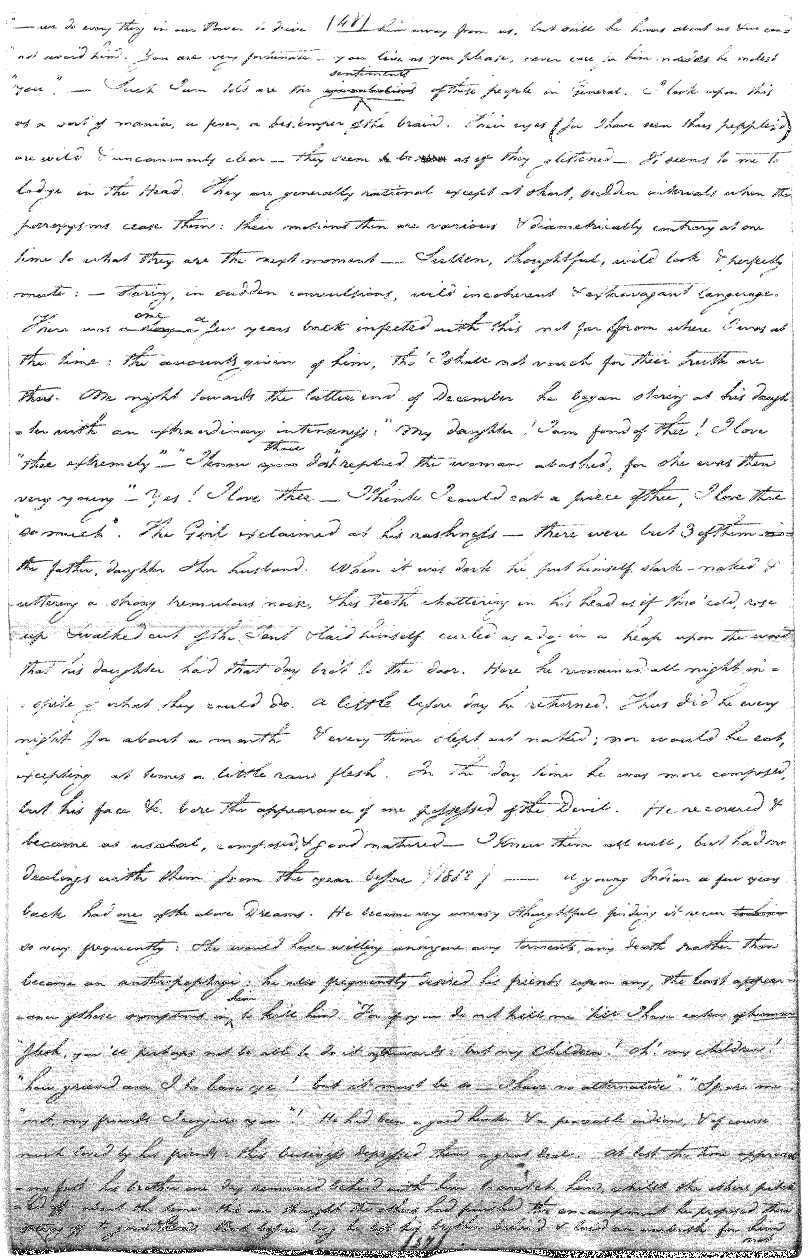 "— we do every thing in our Power to drive (48) him away from us, but still he hovers about us & we can=
"not avoid him. You are very fortunate — you live as you please, never care for him nor does he molest
"you". — Such I am told are the sentiments of these people in General. I look upon this
as a sort of mania, a fever, a distemper of the brain. Their eyes (for I have seen these people's)
are wild & uncommonly clear — they seem as if they glistened — It seems to me to
lodge in the Head. They are generally rational except at short, sudden intervals when the
paroxysms cease them: their motions then are various & diametrically contrary at one
time to what they are the next moment — Sullen, thoughtful, wild look & perfectly
mute: — staring, in sudden convulsions, wild incoherent & extravagant language.
There was one a few years back infected with this not far from where I was at
the time: the accounts given of him, tho' I shall not vouch for their truth are
thus. One night towards the latter end of December he began staring at his daugh
=ter with an extraordinary intenseness: "My daughter! I am fond of thee! I love
"thee extremely" — "I know thou dost" replied the woman abashed, for she was then
very young" — Yes! I love thee — I think I could eat a piece of thee, I love thee
"so much". The Girl exclaimed at his rashness — there were but 3 of them
the father, daughter & her husband. When it was dark he put himself stark-naked &
uttering a strong tremulous noise, & his teeth chattering in his head as if thro' cold, rose
up & walked out of the Tent & laid himself curled as a dog in a heap upon the wood
that his daughter had that day bro't to the door. Here he remained all night in=
=spite of what they could do. A little before day he returned. Thus did he every
night for about a month & every time slept out naked; nor would he eat,
excepting at times a little raw flesh. In the day time he was more composed,
but his face &c. bore the appearance of one possessed of the Devil. He recovered &
became as usual, composed, & good natured — I knew them all well, but had no
dealings with them from the year before (1812) — A young Indian a few years
back had one of the above Dreams. He became very uneasy & thoughtful finding it recur
so very frequently: He would have willing undergone any torments, any death rather than
become an anthropophagi: he also frequently desired his friends upon any, the least appear=
=ance of these symptoms in him to kill him. "For if you do not kill me 'till I have eaten of human
"flesh, you'll perhaps not be able to do it afterwards: but my children! Oh! my children!
"how grieved am I to leave ye! but it must be so — I have no alternative". "Spare me
"not, my friends I conjure you"! He had been a good hunter & a peaceable indian, & of course
much loved by his friends: this business depressed them a great deal. At last the time approach
=ing fast his brother one day remained behind with him to watch him, whilst the others pitch
=ed off about the time this one thought the others had finished the encampment he proposed their
setting off to join them. But before long he let his brother behind &